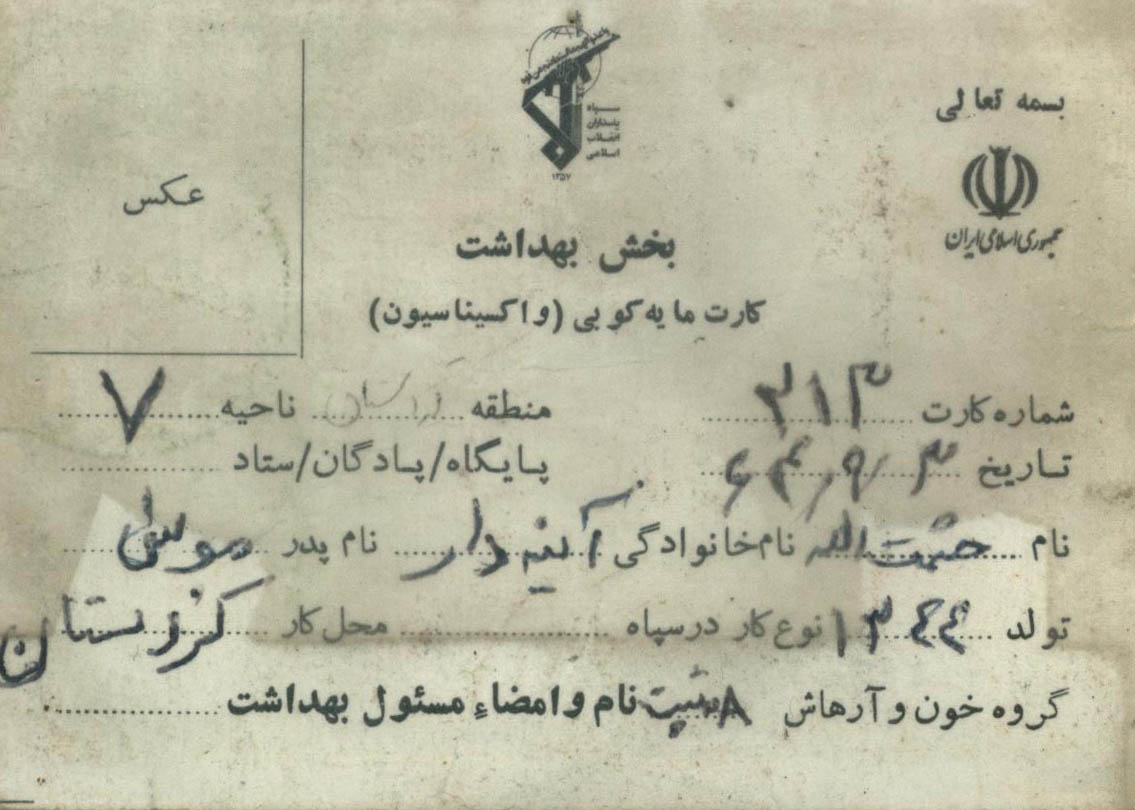 بسمه تعالی
جمهوری اسلامی ایران
سپاه
پاسداران
انقلاب
اسلامی
۱۳۵۷
عکس
بخش بهداشت
کارت مایه کوبی (واکسیناسیون)
شماره کارت ۳۱۳ منطقه لرستان ناحیه ۷
تاریخ پایگاه/پادگان/ستاد
نام حشمت الله نام خانوادگی آئینه دار نام پدر موسی
تولد ۱۳۴۴ نوع کار در سپاه محل کار کردستان
گروه خون و آرهاش A مثبت نام و امضاء مسئول بهداشت